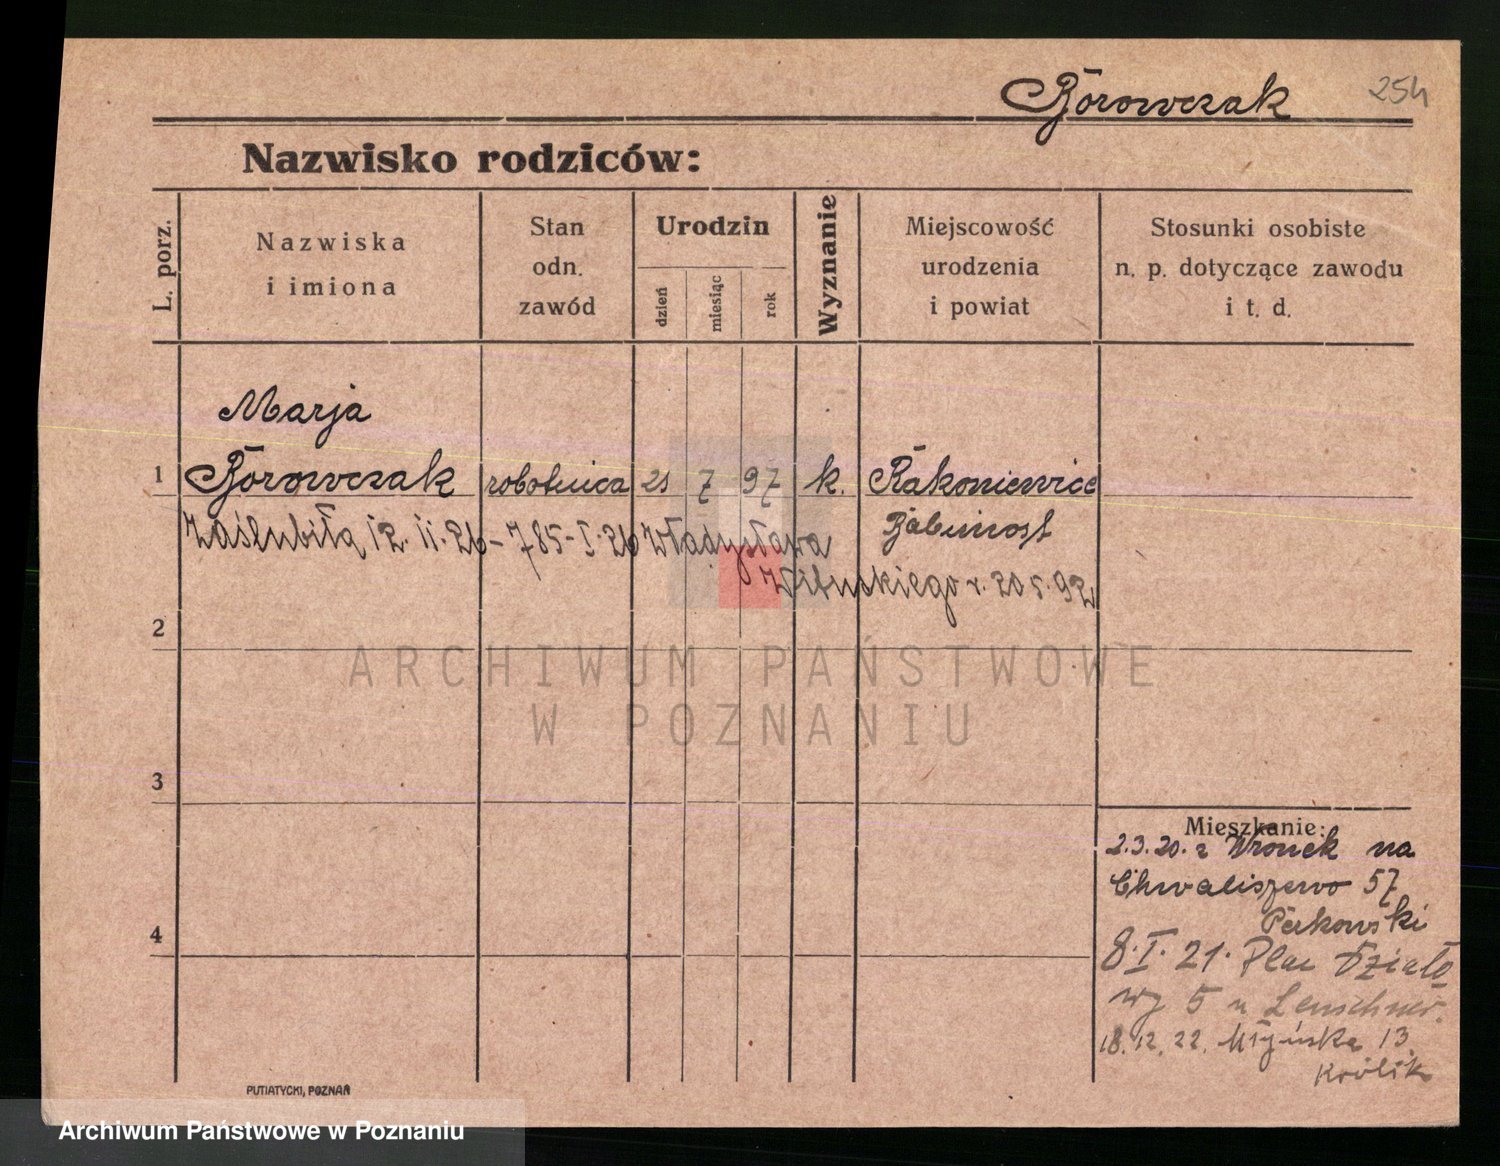 Borowczak 254
Nazwisko rodziców:
L. porz.
Nazwiska
i imiona
Stan
odn.
zawód
Urodzin
dzień
miesiąc
rok
Wyznanie
Miejscowość
urodzenia
i powiat
Stosunki osobiste
n. p. dotyczące zawodu
i t. d.
Marja
1 Borowczak robotnica 21 7 97 k. Rakoniewice
Babimost
zaślubiła 12. 11. 26 - 785-I-26 Władysława
r. 20 5. 92
2
3
4
Mieszkanie:
2.3.20. z Wronek na
Chwaliszewo 57
8. I. 21. Plac Działo
wy 5 u
18. 12. 22. Młyńska 13
Królik
PUTIATYCKI, POZNAŃ
ARCHIWUM PAŃSTWOWE
W POZNANIU
Archiwum Państwowe w Poznaniu